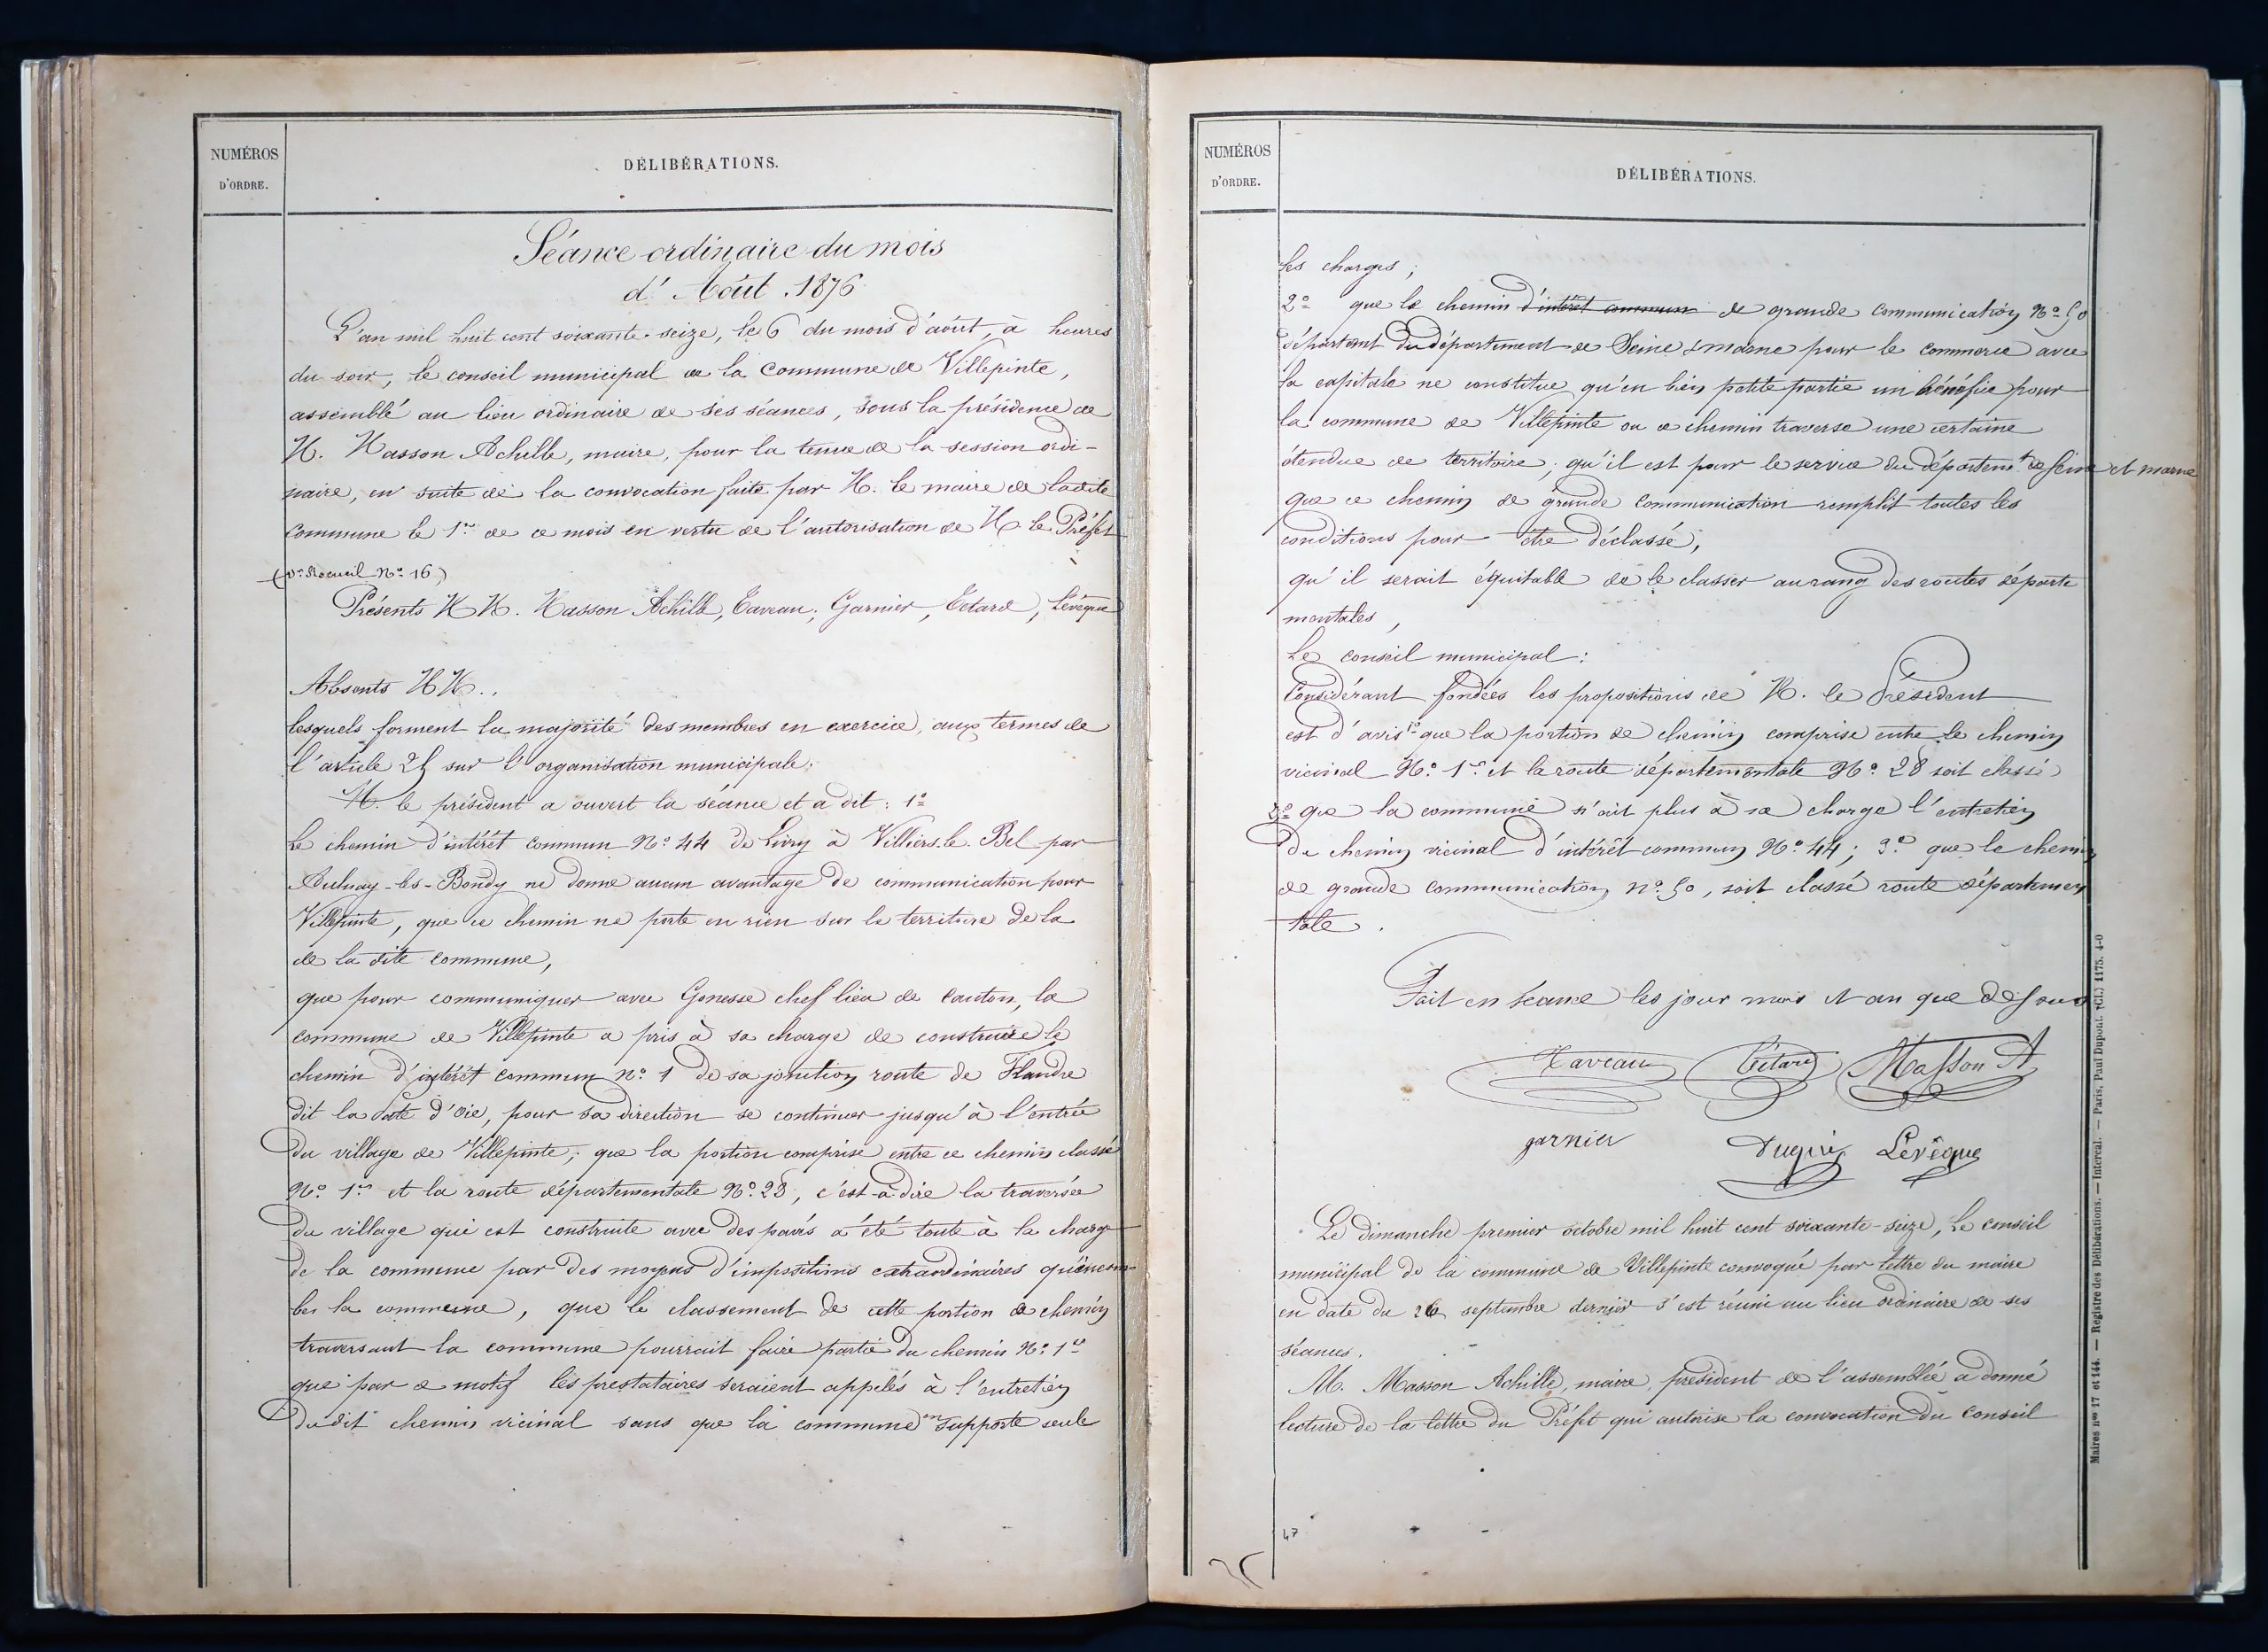 NUMÉROS
D'ORDRE.
DÉLIBÉRATIONS.
Séance ordinaire du mois
d'Août . 1876
L'an mil huit cent soixante-seize, le 6 du mois d'août, à heures
du soir, le conseil municipal de la Commune de Villepinte,
assemblé au lieu ordinaire de ses séances, sous la présidence de
M. Masson Achille, maire, pour la tenue de la session ordi-
naire, en suite de la convocation faite par M. le maire de ladite
commune le 1er de ce mois en vertu de l'autorisation de M. le Préfet
(Vr Recueil No 16)
Présents MM. Masson Achille, Taveau, Garnier, Tétard, Lévêque
Absents MM..
lesquels forment la majorité des membres en exercice, aux termes de
l'article 25 sur l'organisation municipale.
M. le président a ouvert la séance et a dit : 1o
Le chemin d'intérêt commun No 44 de Livry à Villiers-le-Bel par
Aulnay-les-Bondy ne donne aucun avantage de communication pour
Villepinte, que ce chemin ne porte en rien sur le territoire de la
de la dite commune,
que pour communiquer avec Gonesse chef lieu de Canton, la
commune de Villepinte a pris à sa charge de construire le
chemin d'intérêt commun No 1 de sa jonction route de Flandre
dit la Pate d'Oie, pour sa direction se continuer jusqu'à l'entrée
du village de Villepinte; que la portion comprise entre ce chemin classé
No 1er et la route départementale No 28, c'est-à-dire la traversée
du village qui est construite avec des pavés a été toute à la charge
de la commune par des moyens d'impositions extraordinaires
la commune, que le classement de cette portion de chemin
traversant la commune pourrait faire partie du chemin No 1er
que par ce motif les prestataires seraient appelés à l'entretien
dudit chemin vicinal sans que la commune en supporte seule
NUMÉROS
D'ORDRE.
DÉLIBÉRATIONS.
les charges;
2o que le chemin d'intérêt commun de grande communication No 50
départant du département de Seine & marne pour le commerce avec
la capitale ne constitue qu'en bien petite partie un bénéfice pour
la commune de Villepinte ou ce chemin traverse une certaine
étendue de territoire; qu'il est pour le service du départemt de Seine et marne
que ce chemin de grande communication remplit toutes les
conditions pour être déclassé,
qu'il serait équitable de le classer au rang des routes départe
mentales,
Le conseil municipal :
Considérant fondées les propositions de M. le Président
est d'avis 1o que la portion de chemin comprise entre le chemin
vicinal No 1er et la route départementale No 28 soit classé
2o que la commune n'ait plus à sa charge l'entretien
du chemin vicinal d'intérêt commun No 44; 3o que le chemin
de grande communication No 50, soit classé route départemen
tale.
Fait en séance les jour mois et an que dessus
Taveau Tétard Masson A
garnier Dugué Lévêque
Le dimanche premier octobre mil huit cent soixante-seize, Le conseil
municipal de la commune de Villepinte convoqué par lettre du maire
en date du 26 septembre dernier s'est réuni au lieu ordinaire de ses
séances.
M. Masson Achille, maire, président de l'assemblée a donné
lecture de la lettre du Préfet qui autorise la convocation du Conseil
47
Maires nos 17 et 144. — Registre des Délibérations. — Intercal. — Paris, Paul Dupont. (Cl.) 1175. 4-0